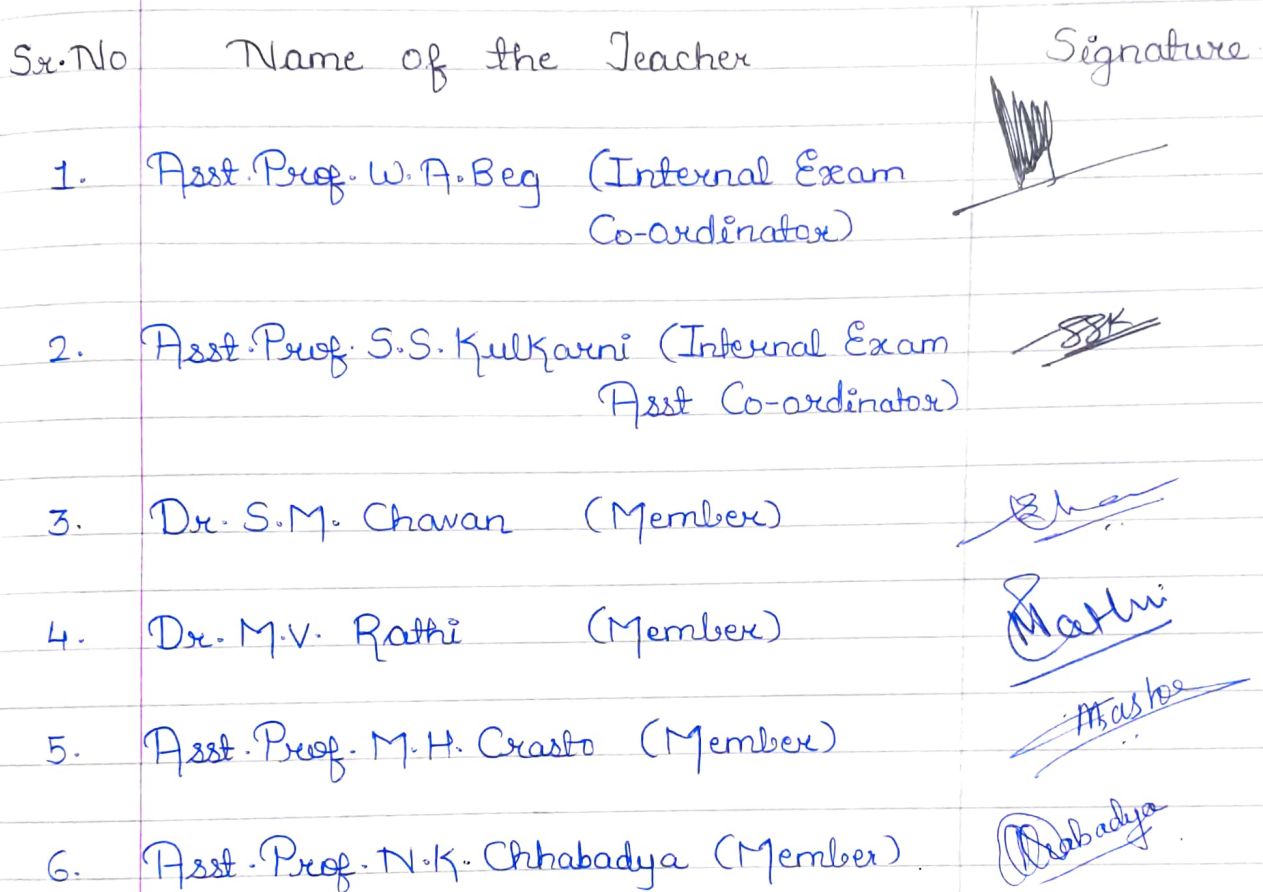 Sr.No Name of the Teacher Signature
1. Asst.Prof. W.A.Beg (Internal Exam
Co-ordinator)
2. Asst.Prof. S.S.Kulkarni (Internal Exam SSK
Asst Co-ordinator)
3. Dr. S.M. Chavan (Member)
4. Dr. M.V. Rathi (Member)
5. Asst.Prof. M.H. Crasto (Member)
6. Asst.Prof. N.K. Chhabadya (Member)